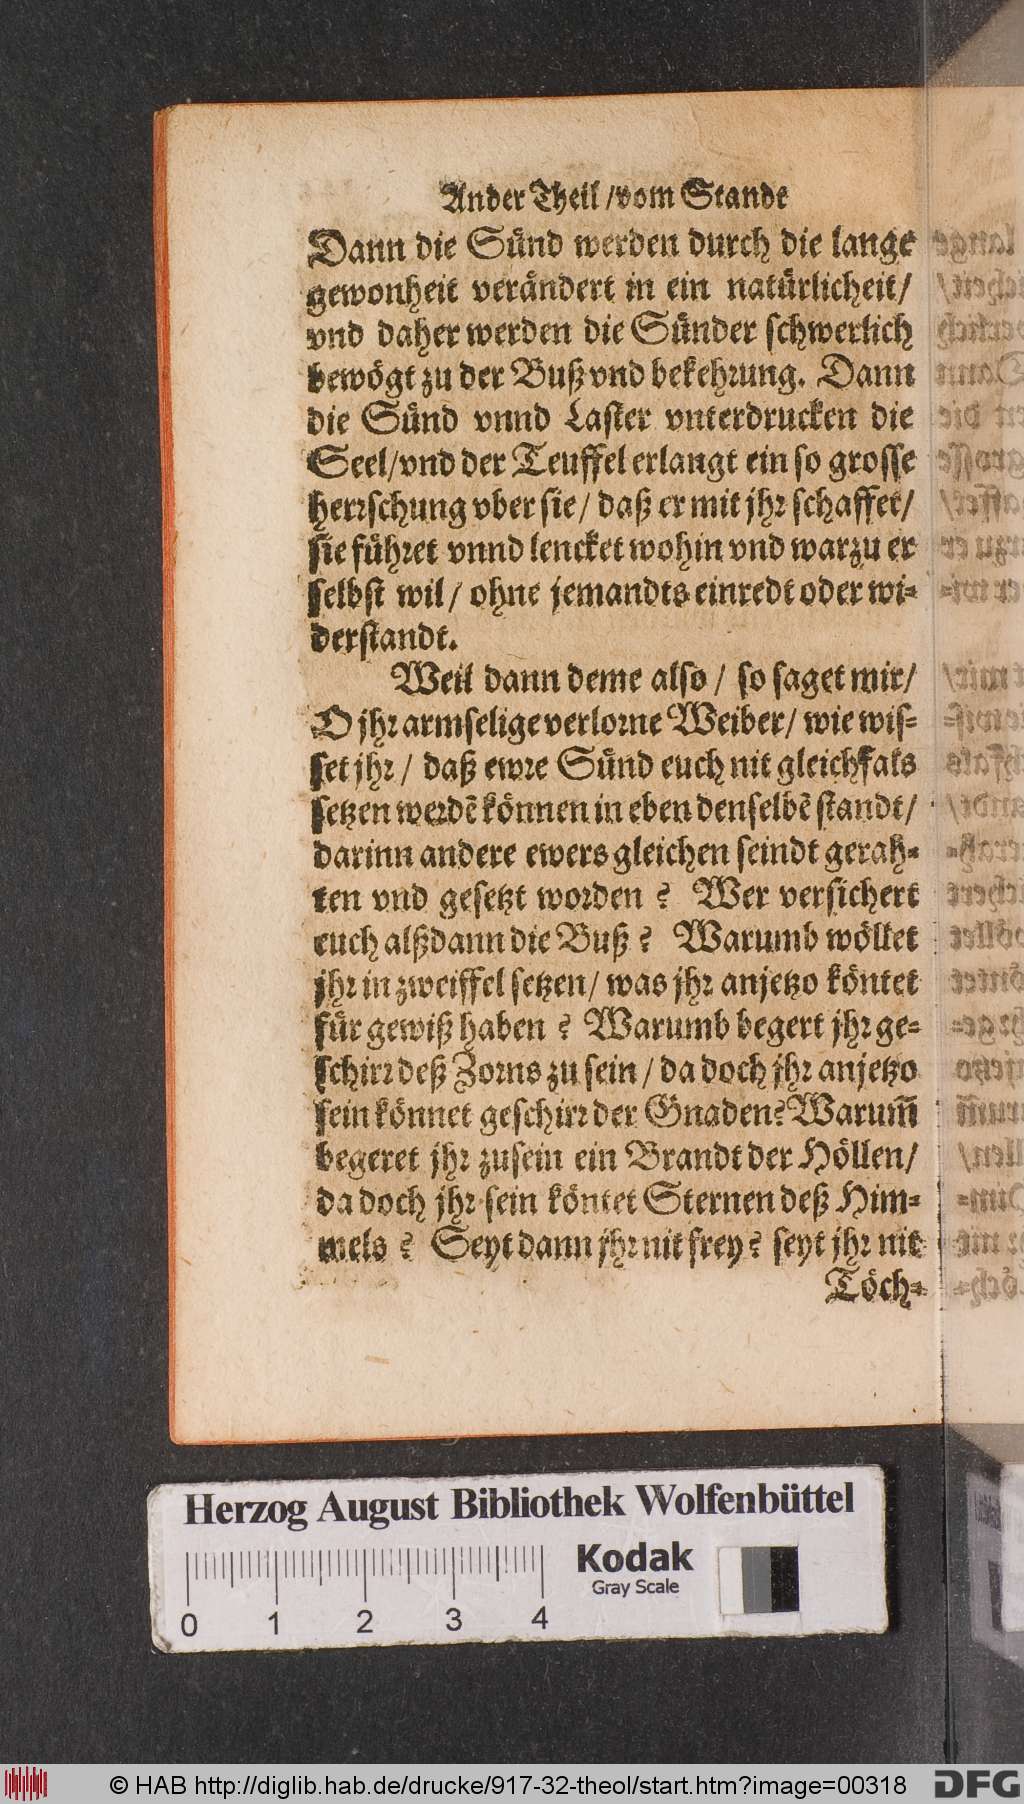 Ander Theil /vom Stande
Dann die Sünd werden durch die lange
gewonheit verändert in ein natürlicheit/
vnd daher werden die Sünder schwerlich
bewögt zu der Buß vnd bekehrung. Dann
die Sünd vnnd Laster vnterdrucken die
Seel/vnd der Teuffel erlangt ein so grosse
herrschung vber sie / daß er mit jhr schaffet/
sie führet vnnd lencket wohin vnd warzu er
selbst wil / ohne jemandts einredt oder wi-
derstandt.
Weil dann deme also / so saget mir/
O jhr armselige verlorne Weiber/ wie wis-
set jhr / daß ewre Sünd euch nit gleichfals
setzen werdē können in eben denselbē standt/
darinn andere ewers gleichen seindt gerah-
ten vnd gesetzt worden ? Wer versichert
euch alßdann die Buß ? Warumb wöllet
jhr in zweiffel setzen/ was jhr anjetzo köntet
für gewiß haben ? Warumb begert jhr ge-
schirr deß Zorns zu sein / da doch jhr anjetzo
sein könnet geschirr der Gnaden? Warum̄
begeret jhr zusein ein Brandt der Höllen/
da doch jhr sein köntet Sternen deß Him-
mels ? Seyt dann jhr nit frey? seyt jhr nit
Töch-
Herzog August Bibliothek Wolfenbüttel
Kodak
Gray Scale
0 1 2 3 4
© HAB http://diglib.hab.de/drucke/917-32-theol/start.htm?image=00318
DFG